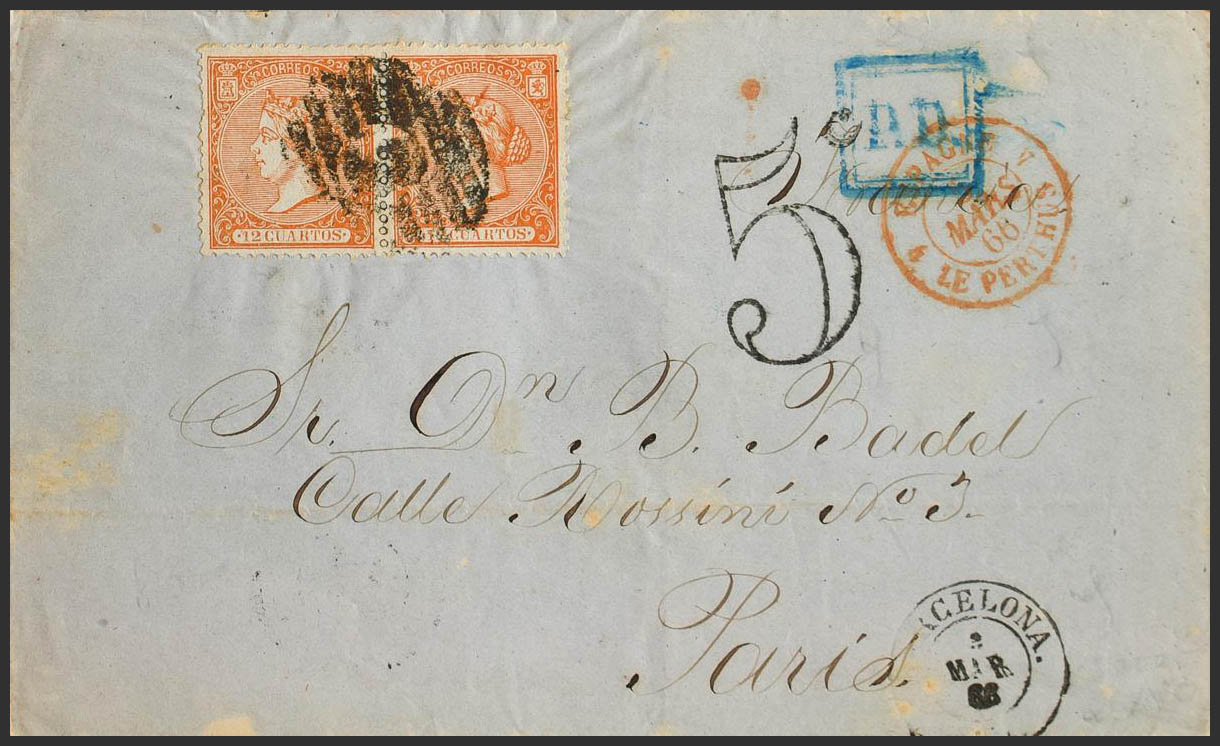 CORREOS CORREOS
12 CUARTOS CUARTOS
P.D.
5
MARS
66
4 LE PERTHUS
Sr. Dn B. Badel
Calle Rossini No 3
París
BARCELONA.
2
MAR
66